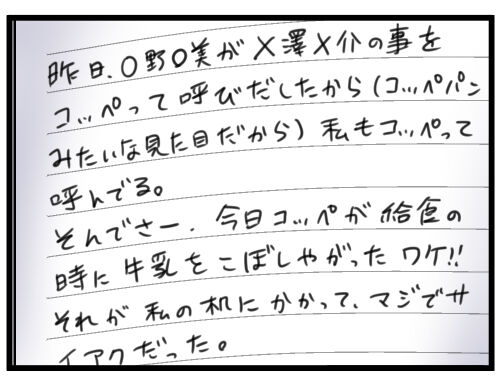 昨日、〇野〇美が×澤×介の事を
コッペって呼びだしたから(コッペパン
みたいな見た目だから)私もコッペって
呼んでる。
そんでさー、今日コッペが給食の
時に牛乳をこぼしやがったワケ!!
それが私の机にかかって、マジでサ
イアクだった。